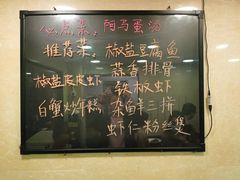 必点菜: 阳马蛋汤
推荐菜: 椒盐豆腐鱼
蒜香排骨
椒盐皮皮虾 铁板虾
白蟹炒年糕 杂鲜三拼
虾仁粉丝煲